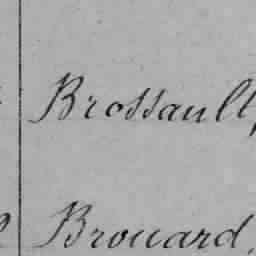 Brossault,
Brouard.